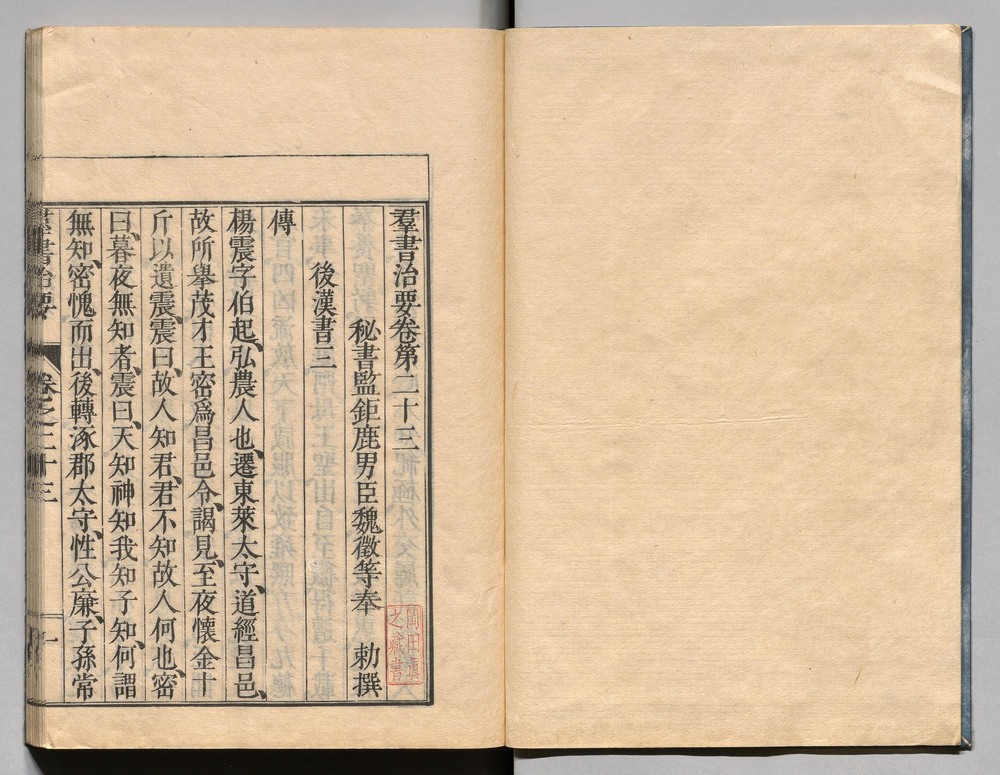 羣書治要卷第二十三
秘書監鉅鹿男臣魏徵等奉　勅撰
後漢書三
傳
楊震字伯起、弘農人也、遷東萊太守、道經昌邑、
故所舉茂才王密爲昌邑令、謁見、至夜懷金十
斤以遺震、震曰、故人知君、君不知故人何也、密
曰、暮夜無知者、震曰、天知神知我知子知、何謂
無知、密愧而出、後轉涿郡太守、性公廉、子孫常
羣書治要　卷之二十三　一
岡田真
之藏書